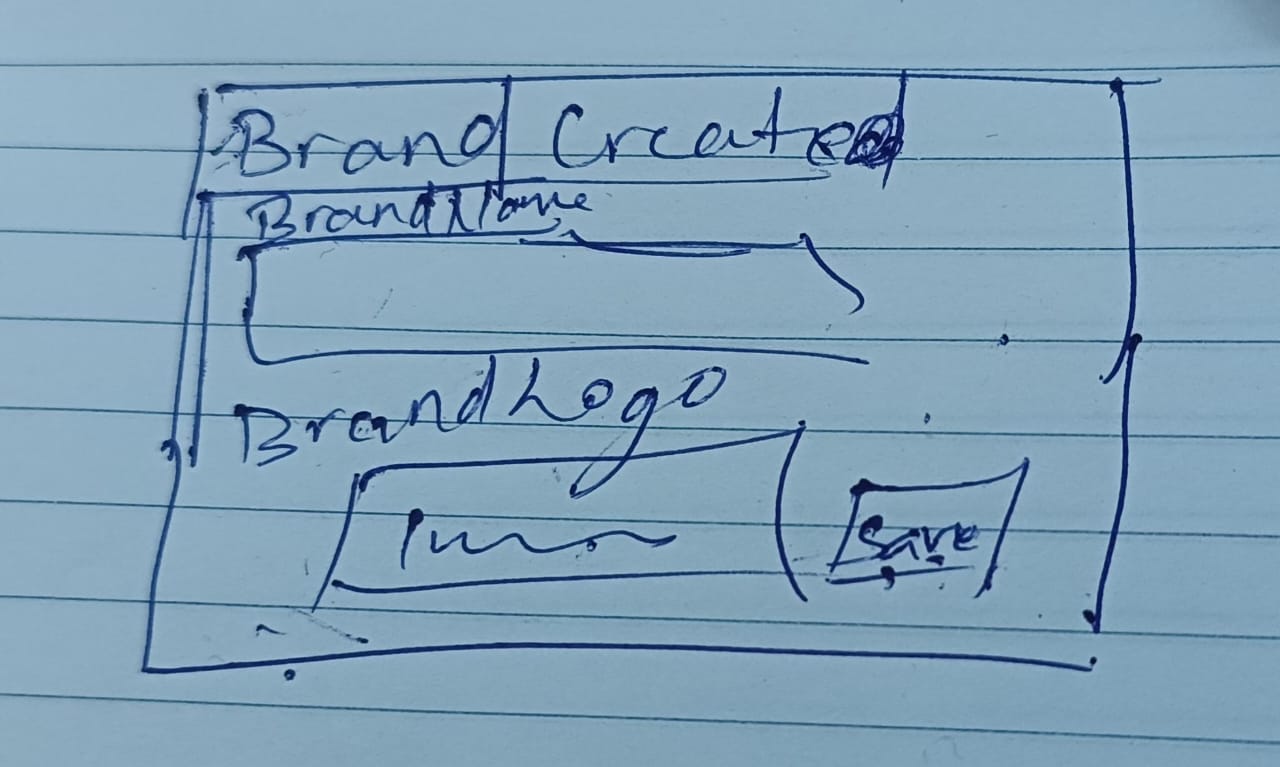 Brand Create
Brand Name
Brand Logo
Save